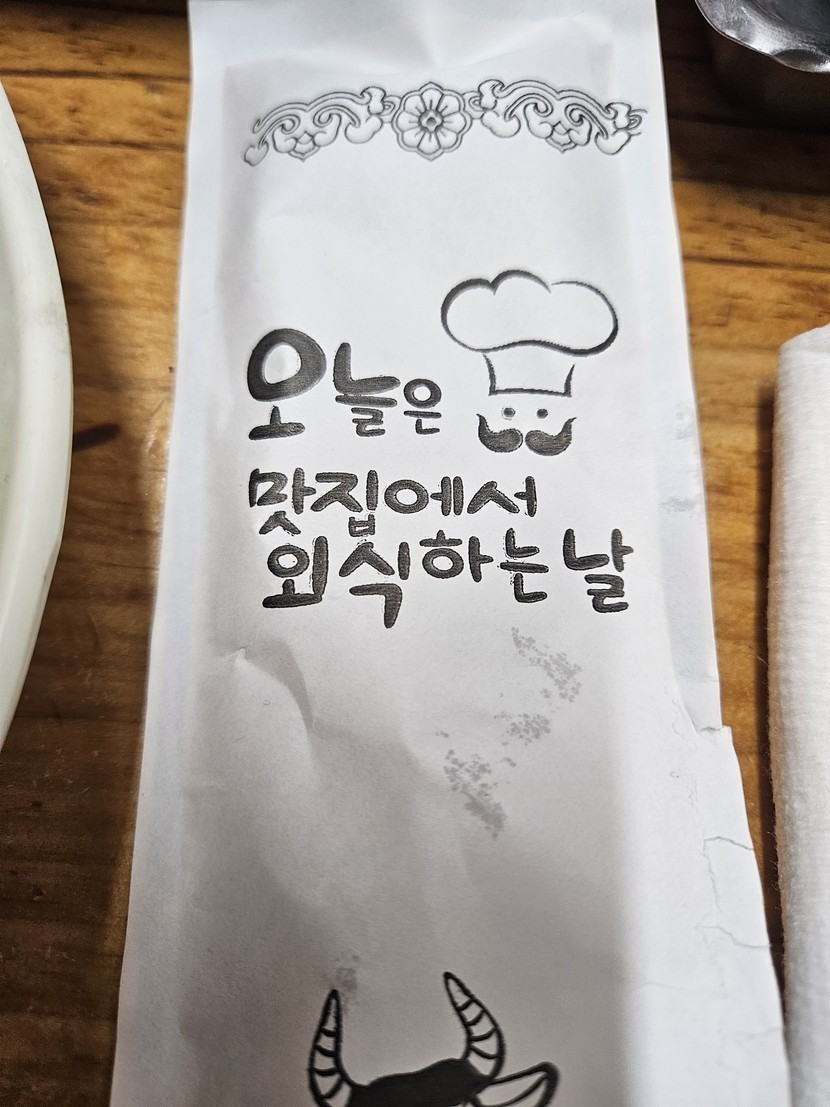 오늘은
맛집에서
외식하는 날